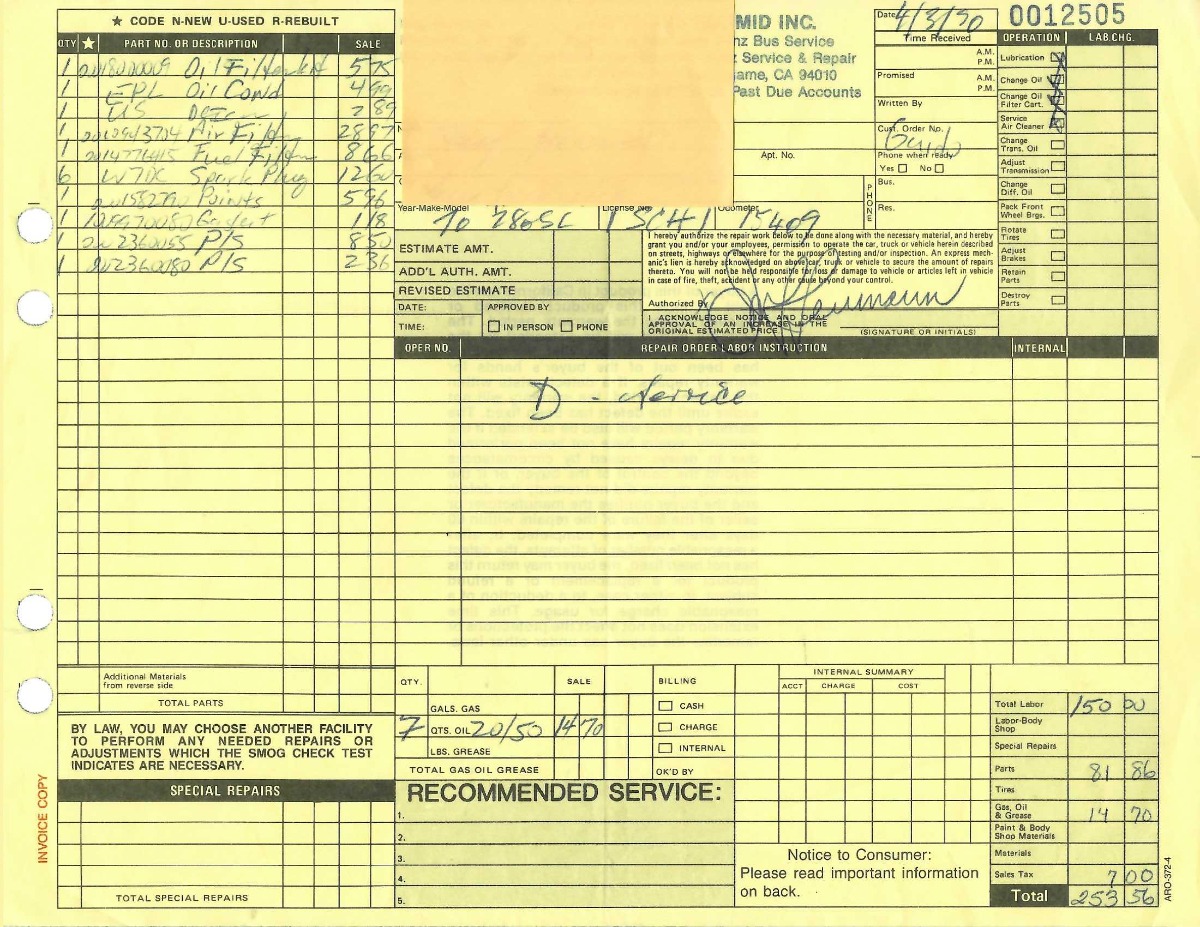 ★ CODE N-NEW U-USED R-REBUILT
QTY ★ PART NO. OR DESCRIPTION SALE
1 0018000009 Oil Filter kit 5 75
1 EPL Oil Cond 4 99
1 US 2 89
1 0020943704 Air Filter 28 97
1 0014771415 Fuel Filter 8 66
6 W7DC Spark Plug 12 60
1 0001582790 Points 5 96
1 1299970080 Gasket 1 18
1 002 2360055 P/S 8 50
1 002 2360080 P/S 2 36
Additional Materials
from reverse side
TOTAL PARTS
BY LAW, YOU MAY CHOOSE ANOTHER FACILITY
TO PERFORM ANY NEEDED REPAIRS OR
ADJUSTMENTS WHICH THE SMOG CHECK TEST
INDICATES ARE NECESSARY.
SPECIAL REPAIRS
TOTAL SPECIAL REPAIRS
INVOICE COPY
MID INC.
nz Bus Service
Service & Repair
ame, CA 94010
Past Due Accounts
Date 4/3/90
Time Received
A.M.
P.M.
Promised A.M.
P.M.
Written By
Cust. Order No.
Guido
Apt. No.
Phone when ready
Yes No
PHONE
Bus.
Res.
Year-Make-Model License No. Odometer
70 280SL 1SCH1 15409
ESTIMATE AMT.
ADD'L AUTH. AMT.
REVISED ESTIMATE
DATE: APPROVED BY
TIME: IN PERSON PHONE
I hereby authorize the repair work below to be done along with the necessary material, and hereby
grant you and/or your employees, permission to operate the car, truck or vehicle herein described
on streets, highways or elsewhere for the purpose of testing and/or inspection. An express mech-
anic's lien is hereby acknowledged on above car, truck or vehicle to secure the amount of repairs
thereto. You will not be held responsible for loss or damage to vehicle or articles left in vehicle
in case of fire, theft, accident or any other cause beyond your control.
Authorized By
I ACKNOWLEDGE NOTICE AND ORAL
APPROVAL OF AN INCREASE IN THE
ORIGINAL ESTIMATED PRICE.
(SIGNATURE OR INITIALS)
0012505
OPERATION LAB. CHG.
Lubrication
Change Oil
Change Oil
Filter Cart.
Service
Air Cleaner
Change
Trans. Oil
Adjust
Transmission
Change
Diff. Oil
Pack Front
Wheel Brgs.
Rotate
Tires
Adjust
Brakes
Retain
Parts
Destroy
Parts
OPER NO. REPAIR ORDER LABOR INSTRUCTION INTERNAL
D - Service
QTY. SALE
GALS. GAS
7 QTS. OIL 20/50 14 70
LBS. GREASE
TOTAL GAS OIL GREASE
BILLING
CASH
CHARGE
INTERNAL
OK'D BY
INTERNAL SUMMARY
ACCT CHARGE COST
RECOMMENDED SERVICE:
1.
2.
3.
4.
5.
Notice to Consumer:
Please read important information
on back.
Total Labor 150 00
Labor-Body
Shop
Special Repairs
Parts 81 86
Tires
Gas, Oil
& Grease 14 70
Paint & Body
Shop Materials
Materials
Sales Tax 7 00
Total 253 56
ARO-372-4